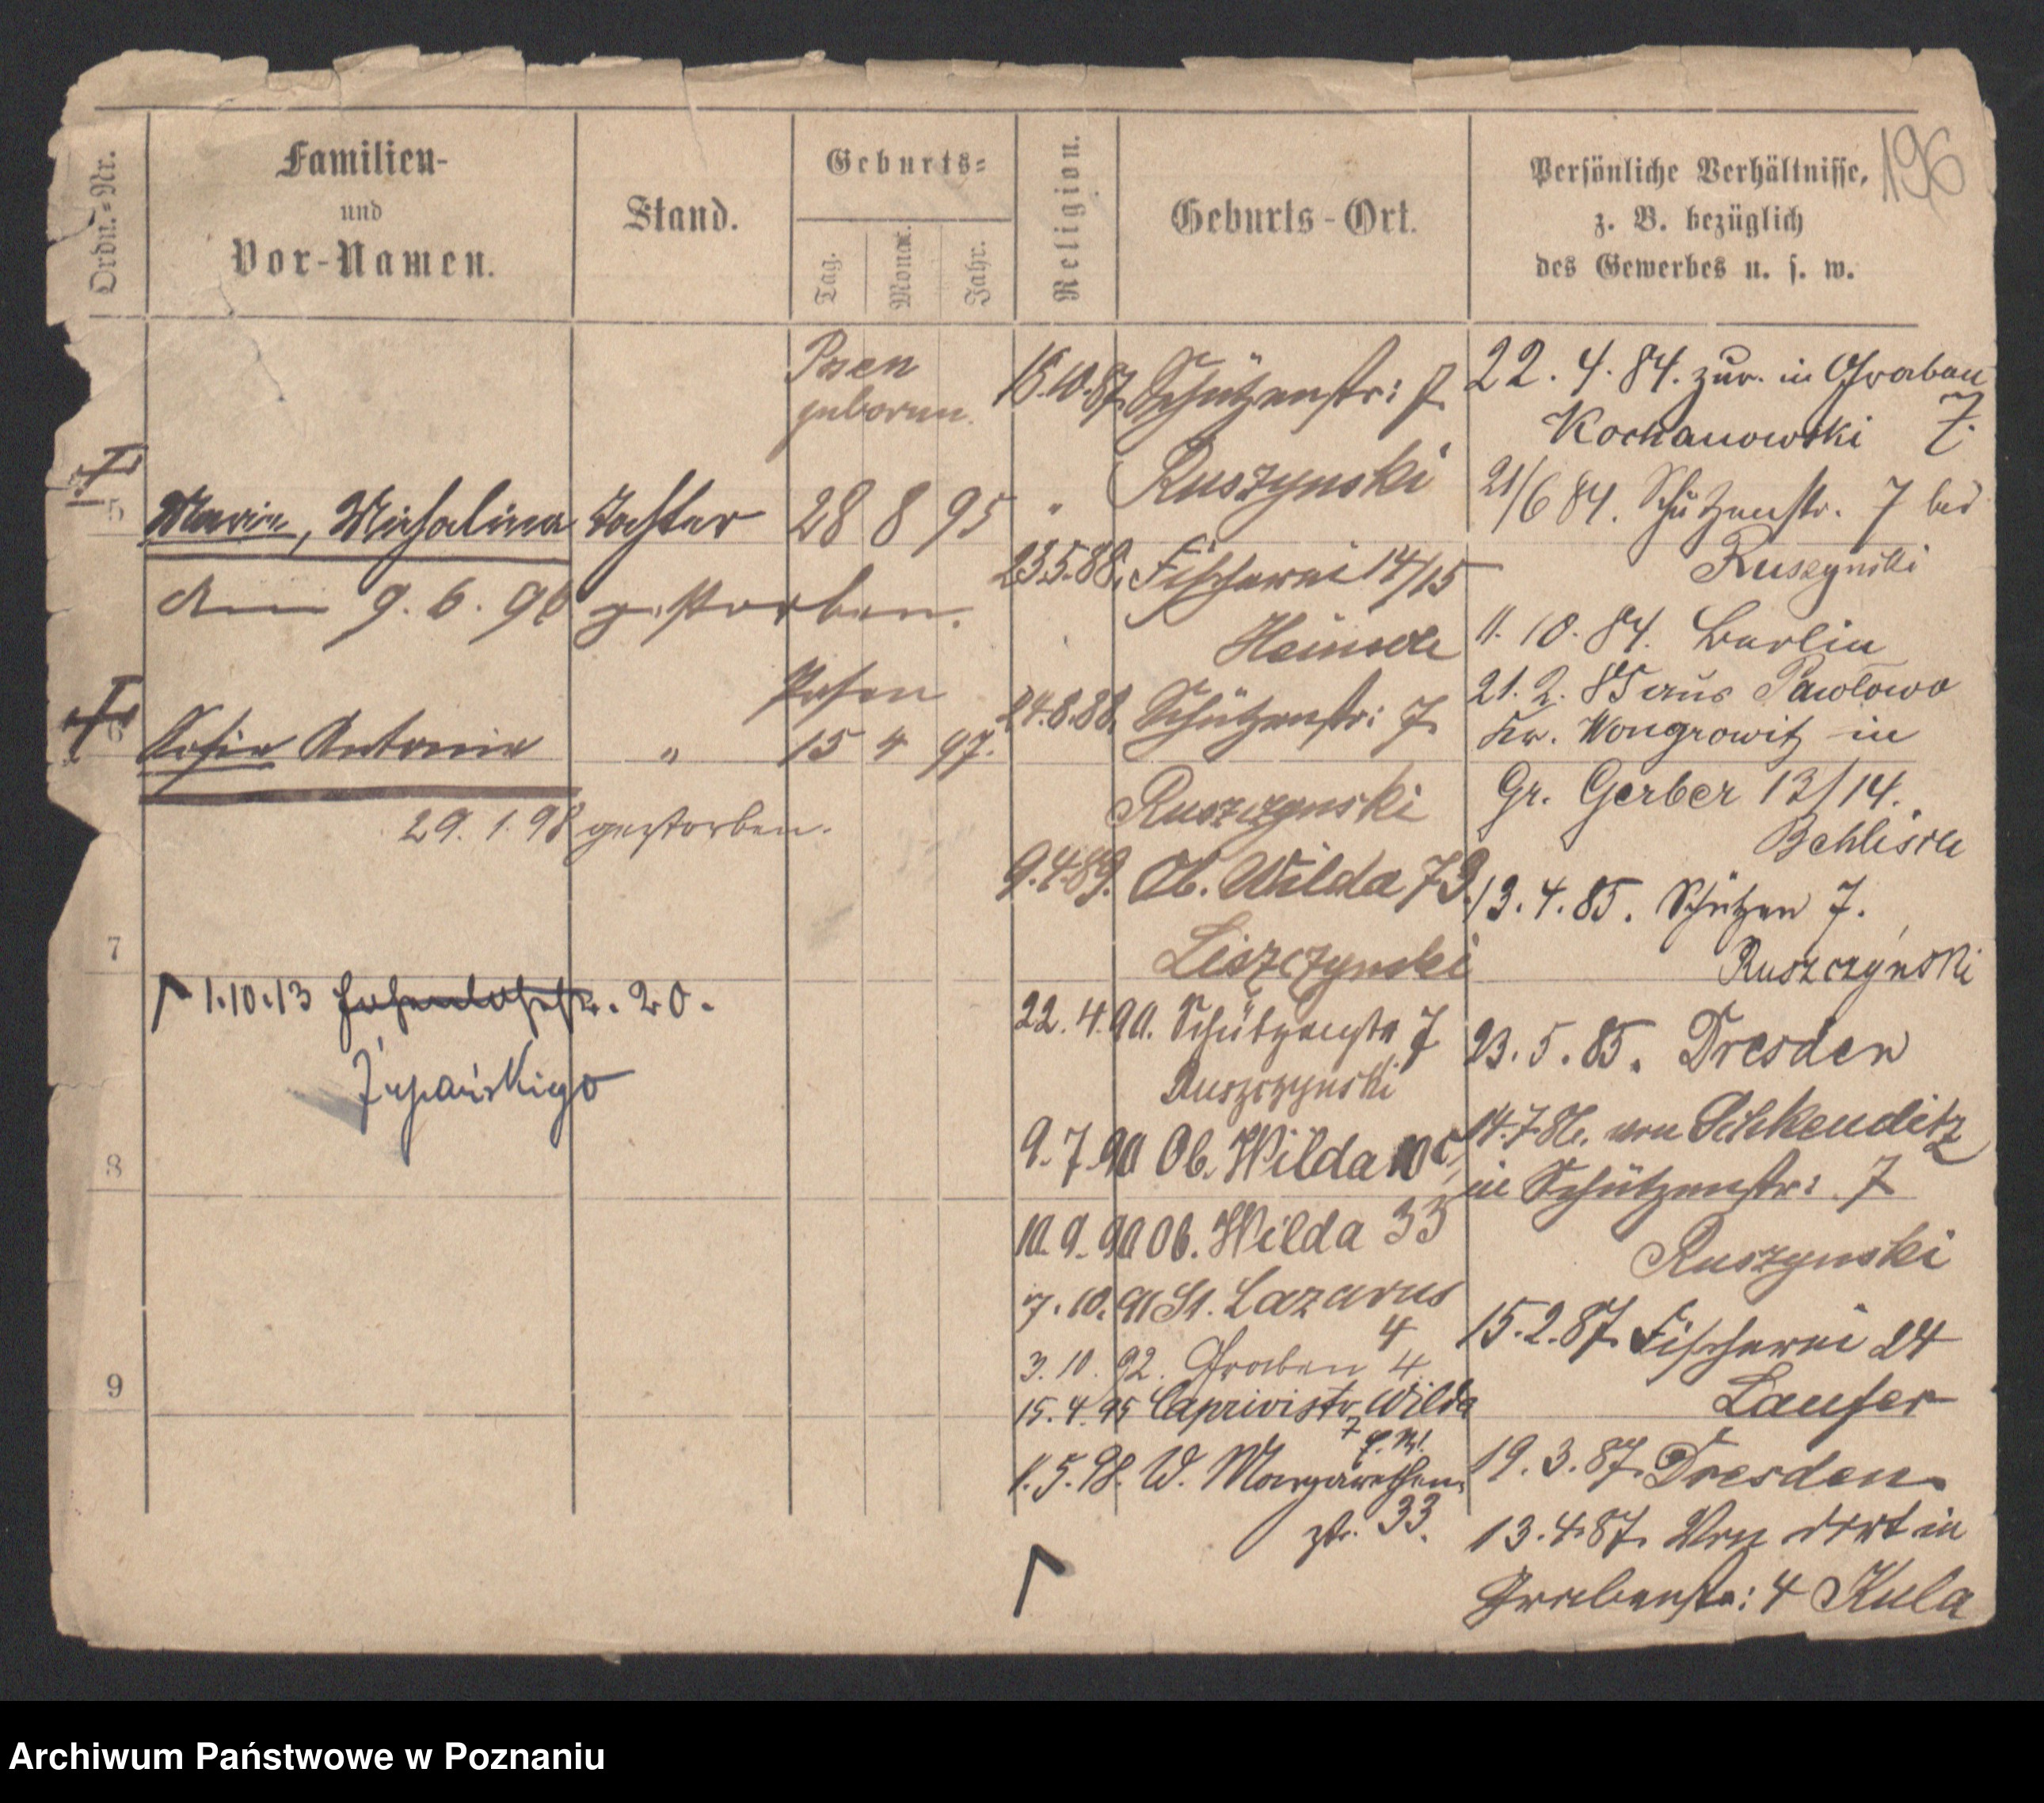 196
Ordn.-Nr.
Familien-
und
Vor-Namen.
Stand.
Geburts-
Tag.
Monat.
Jahr.
Religion.
Geburts-Ort.
Persönliche Verhältnisse,
z. B. bezüglich
des Gewerbes u. s. w.
Posen
geboren.
5 Maria, Michalina Tochter 28 8 95 "
den 9. 6. 96 gestorben.
Posen
6 Sofia Antonia " 15 4 97.
29. 1. 98 gestorben.
7
1.10.13 20.
Żupańskiego
8
9
15.10.87. Schützenstr: 7.
Ruszynski
23.5.88. Fischerei 14/15
24.8.88. Schützenstr: 7.
Ruszczynski
9.4.89. Ob. Wilda 73.
Liszczynski
22. 4. 90. Schützenstr 7
Ruszczynski
9. 7. 90 Ob. Wilda
10. 9. 90 Ob. Wilda 33
7. 10. 91 St. Lazarus
4
3. 10. 92. Graben 4.
15. 4. 95 Caprivistr. Wilda
7
1. 5. 98. W. Margarethen
str. 33.
22. 4. 84. zur. in Graben
Kochanowski 7.
21/6 84. Schützenstr. 7 bei
Ruszynski
11. 10. 84. Berlin
21. 2. 85 aus Pawlowo
Kr. Wongrowitz in
Gr. Gerber 13/14.
13. 4. 85. Schützen 7.
Ruszczyński
23. 5. 85. Dresden
14.7.86. von Schkeuditz
in Schützenstr: 7
Ruszynski
15.2.87. Fischerei 24
Laufer
19. 3. 87. Dresden
13. 4. 87. Von dort in
Grabenstr: 4 Kula
Archiwum Państwowe w Poznaniu